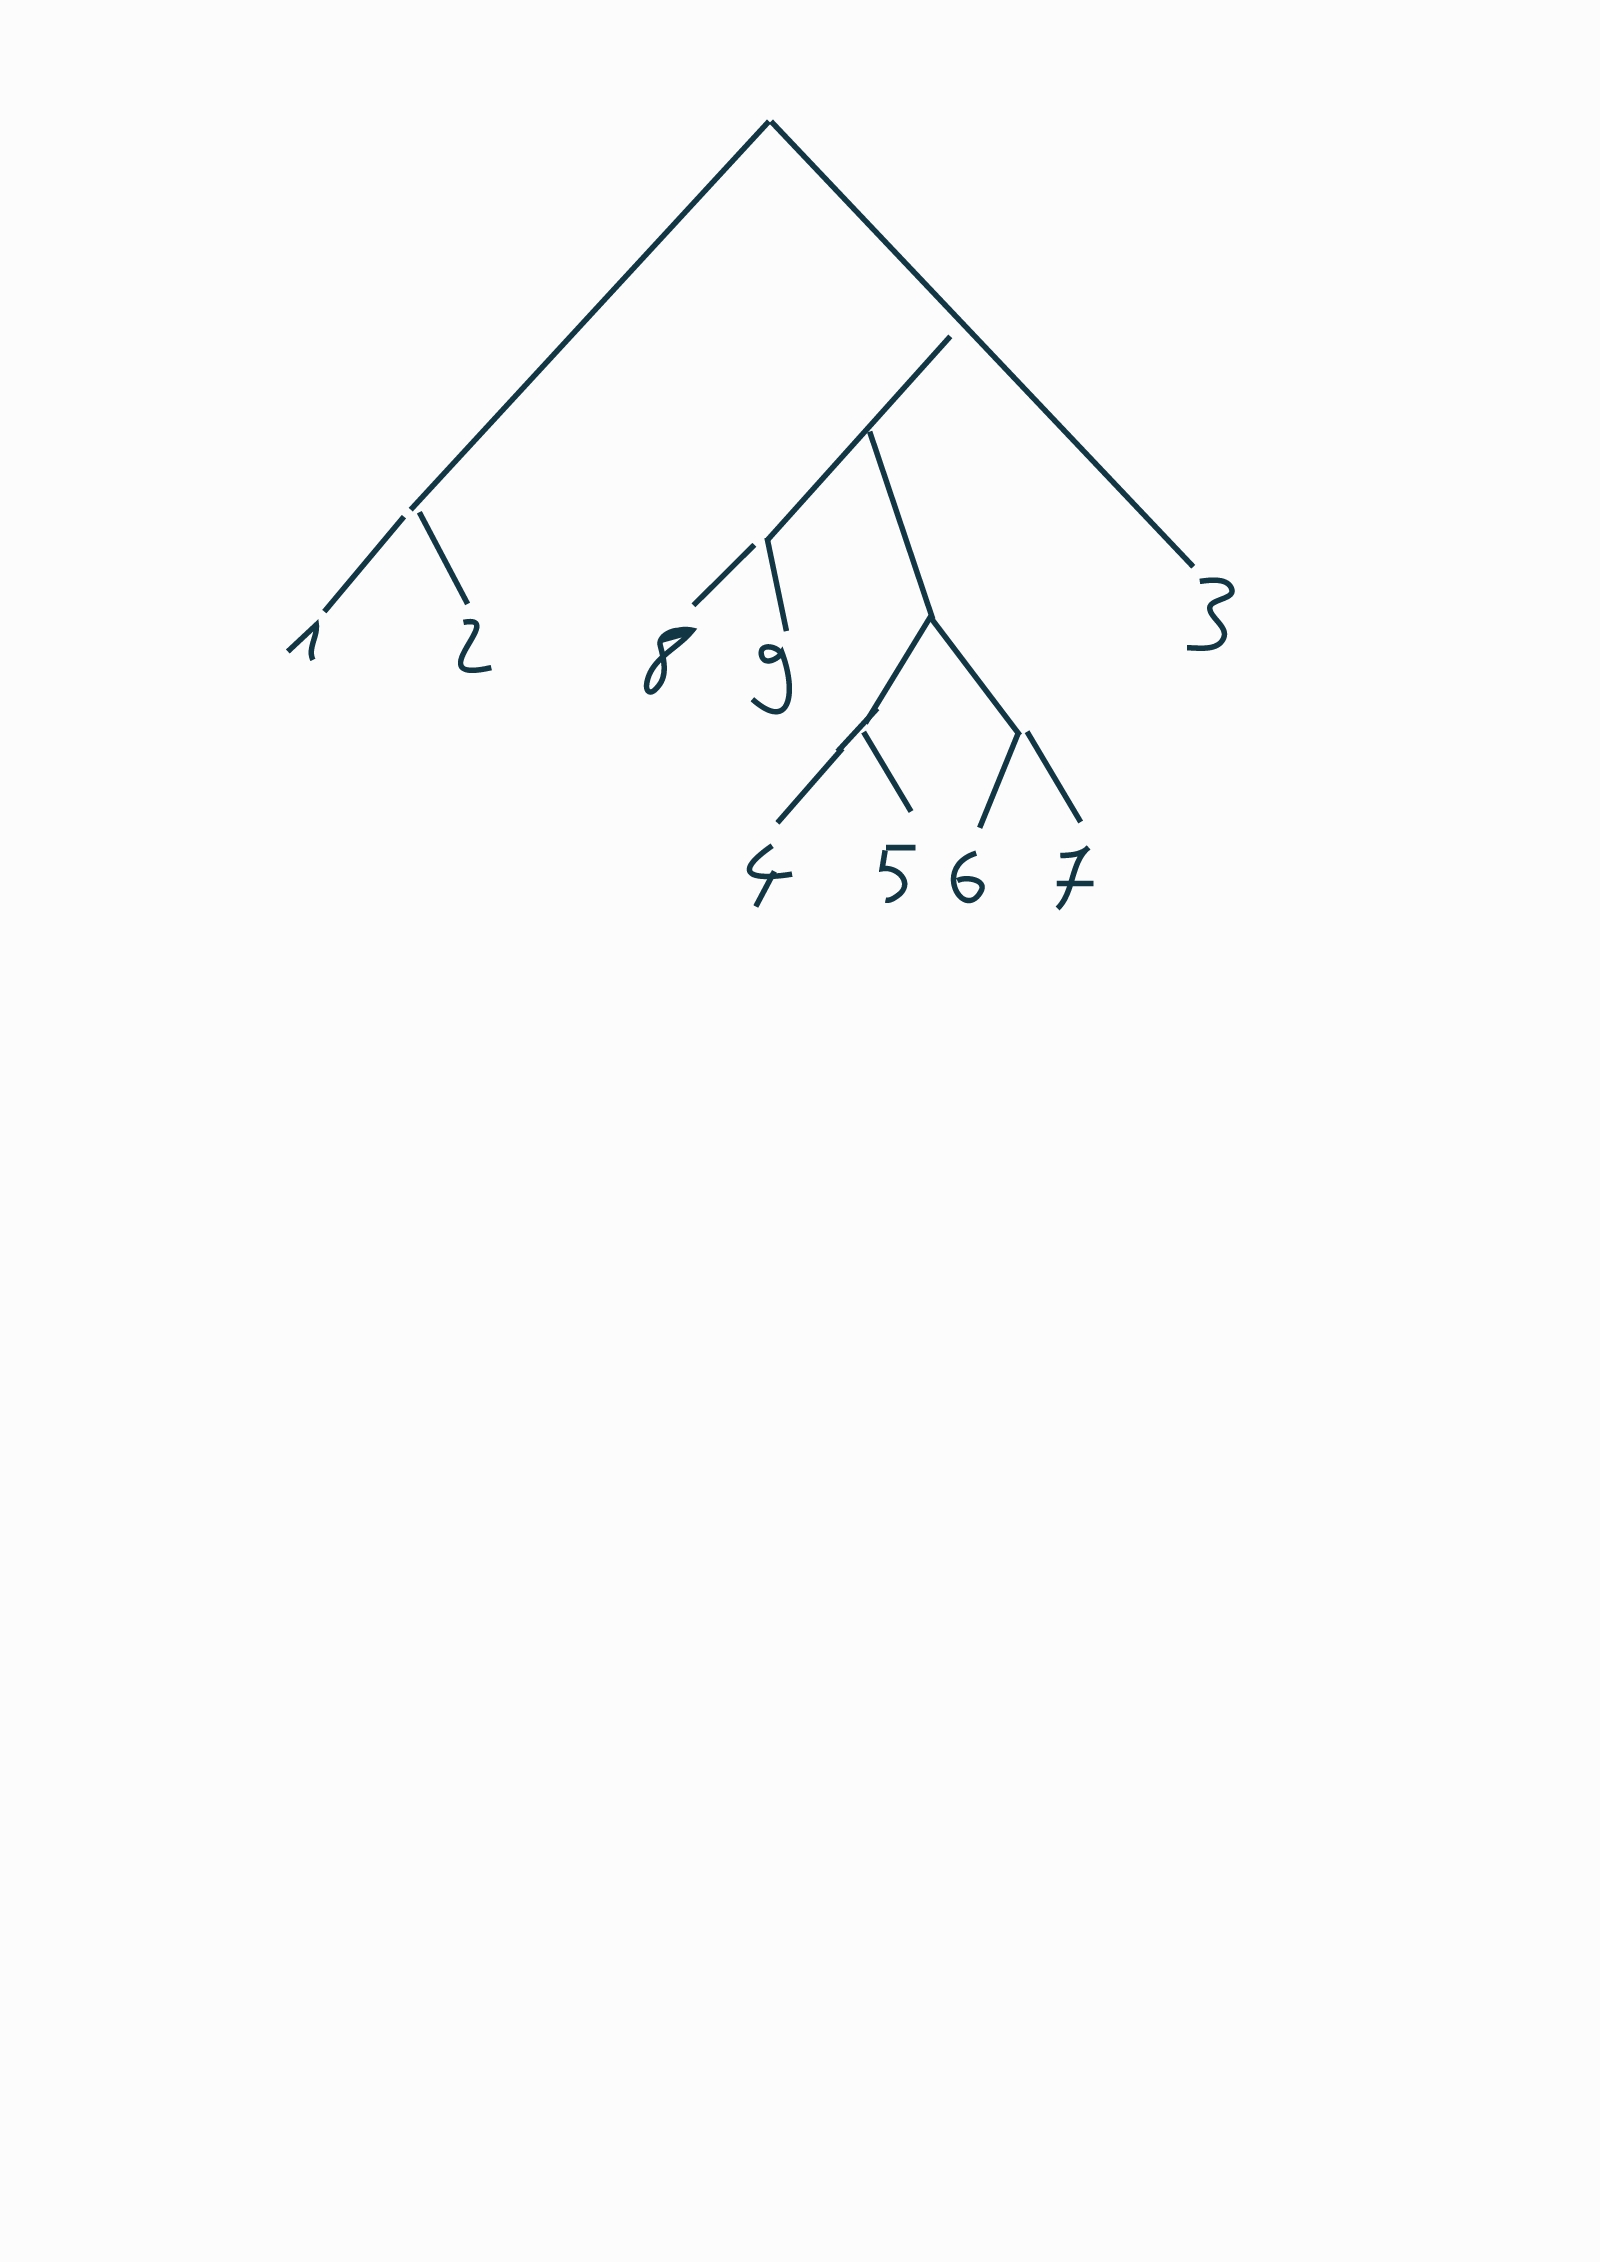 1 2 8 9 3
4 5 6 7